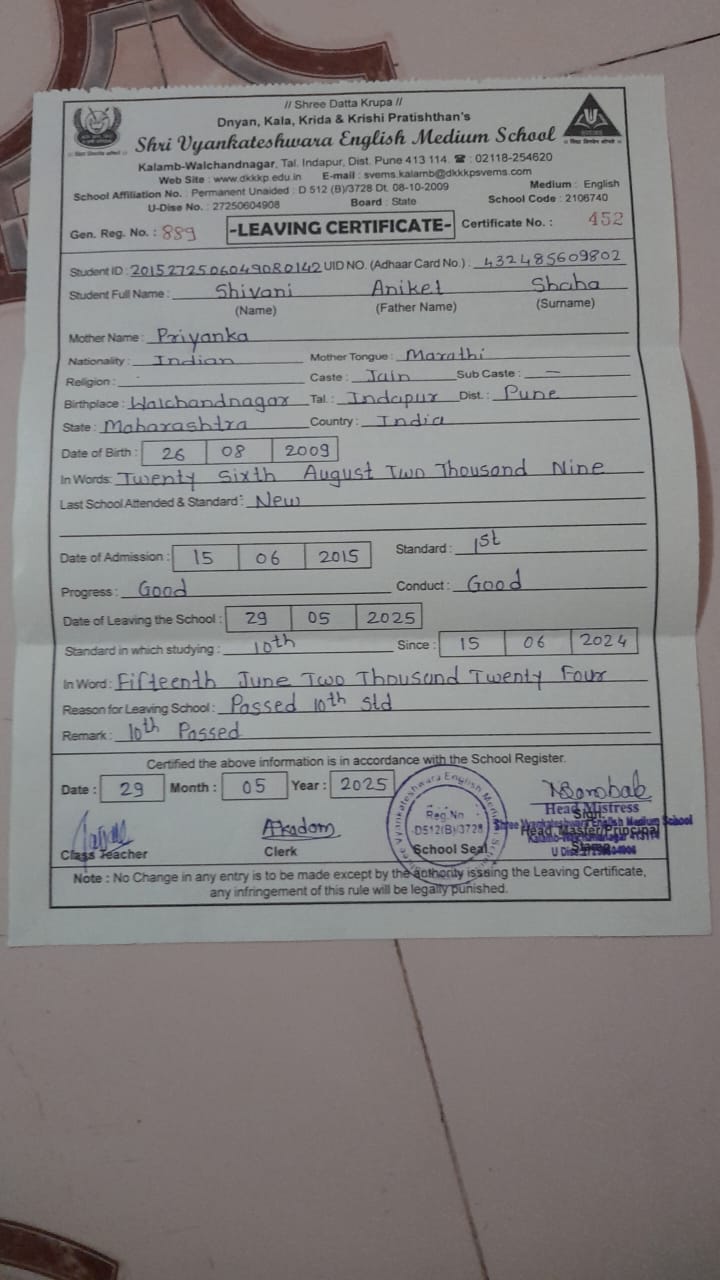 // Shree Datta Krupa //
Dnyan, Kala, Krida & Krishi Pratishthan's
Shri Vyankateshwara English Medium School
Kalamb-Walchandnagar, Tal. Indapur, Dist. Pune 413 114. ☎ : 02118-254620
Web Site : www.dkkkp.edu.in E-mail : svems.kalamb@dkkkpsvems.com
School Affiliation No. : Permanent Unaided : D 512 (B)/3728 Dt. 08-10-2009 Medium : English
U-Dise No. : 27250604908 Board : State School Code : 2106740
Gen. Reg. No. : 889 -LEAVING CERTIFICATE- Certificate No. : 452
Student ID : 2015272506049080142 UID NO. (Adhaar Card No.) : 432485609802
Student Full Name : Shivani Aniket Shaha
(Name) (Father Name) (Surname)
Mother Name : Priyanka
Nationality : Indian Mother Tongue : Marathi
Religion : Caste : Jain Sub Caste : —
Birthplace : Walchandnagar Tal. : Indapur Dist. : Pune
State : Maharashtra Country : India
Date of Birth : 26 08 2009
In Words: Twenty Sixth August Two Thousand Nine
Last School Attended & Standard : New
Date of Admission : 15 06 2015 Standard : 1st
Progress : Good Conduct : Good
Date of Leaving the School : 29 05 2025
Standard in which studying : 10th Since : 15 06 2024
In Word : Fifteenth June Two Thousand Twenty Four
Reason for Leaving School : Passed 10th Std
Remark : 10th Passed
Certified the above information is in accordance with the School Register.
Date : 29 Month : 05 Year : 2025
Reg.No.
D512(B)/3728
Head Mistress
Shree Vyankateshwara English Medium School
Class Teacher Clerk School Seal Head Master/Principal
Note : No Change in any entry is to be made except by the authority issuing the Leaving Certificate,
any infringement of this rule will be legally punished.